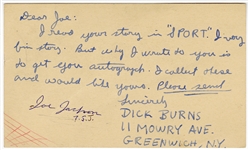 Dear Joe:
I read your story in "SPORT." A very
fine story. But why I wrote to you is
to get your autograph. I collect these
and would like yours. Please send
Sincerely
Joe Jackson
DICK BURNS
11 MOWRY AVE.
GREENWICH, N.Y.